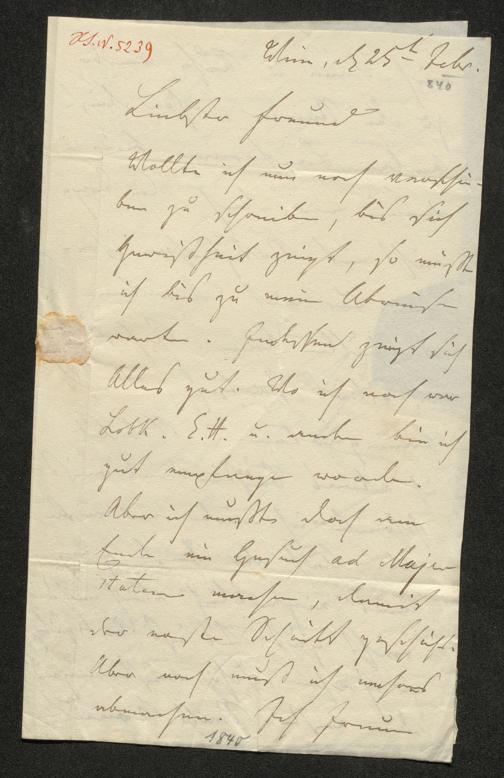 H.I.N. 5239
Wien, d. 25t Febr.
840
Liebster Freund
Wollte ich nun noch verschie-
ben zu schreiben, bis sich
Gewißheit zeigt, so müßte
ich bis zu meiner Abreise
warten. Indessen zeigt sich
Alles gut. Wo ich noch war
Lobk. E.H. u. andere bin ich
gut empfangen worden.
Aber ich mußte doch am
Ende ein Gesuch ad Maje-
statem machen, damit
der erste Schritt geschieht.
Aber noch muß ich
abmachen. Ich
1840